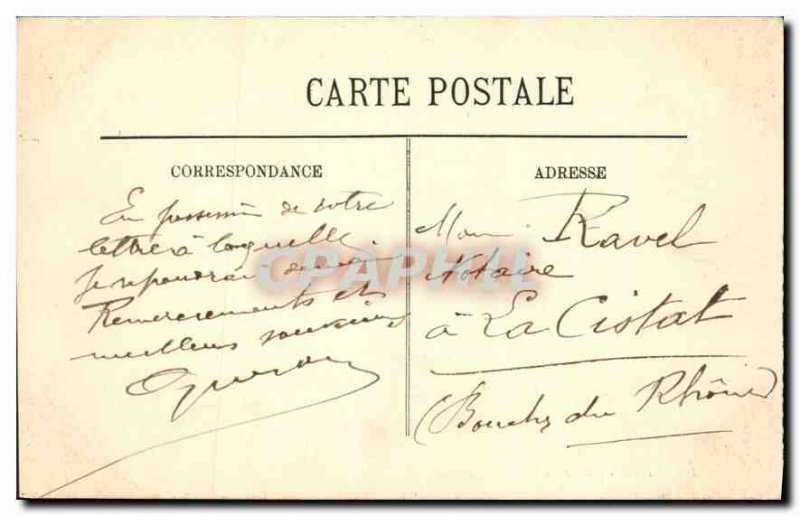 CARTE POSTALE
CORRESPONDANCE
En possession de votre
lettre à laquelle
Je répondrai demain
Remerciements et
meilleurs souvenirs
ADRESSE
Ravel
Notaire
à La Ciotat
(Bouches du Rhône)
CPAPHIL